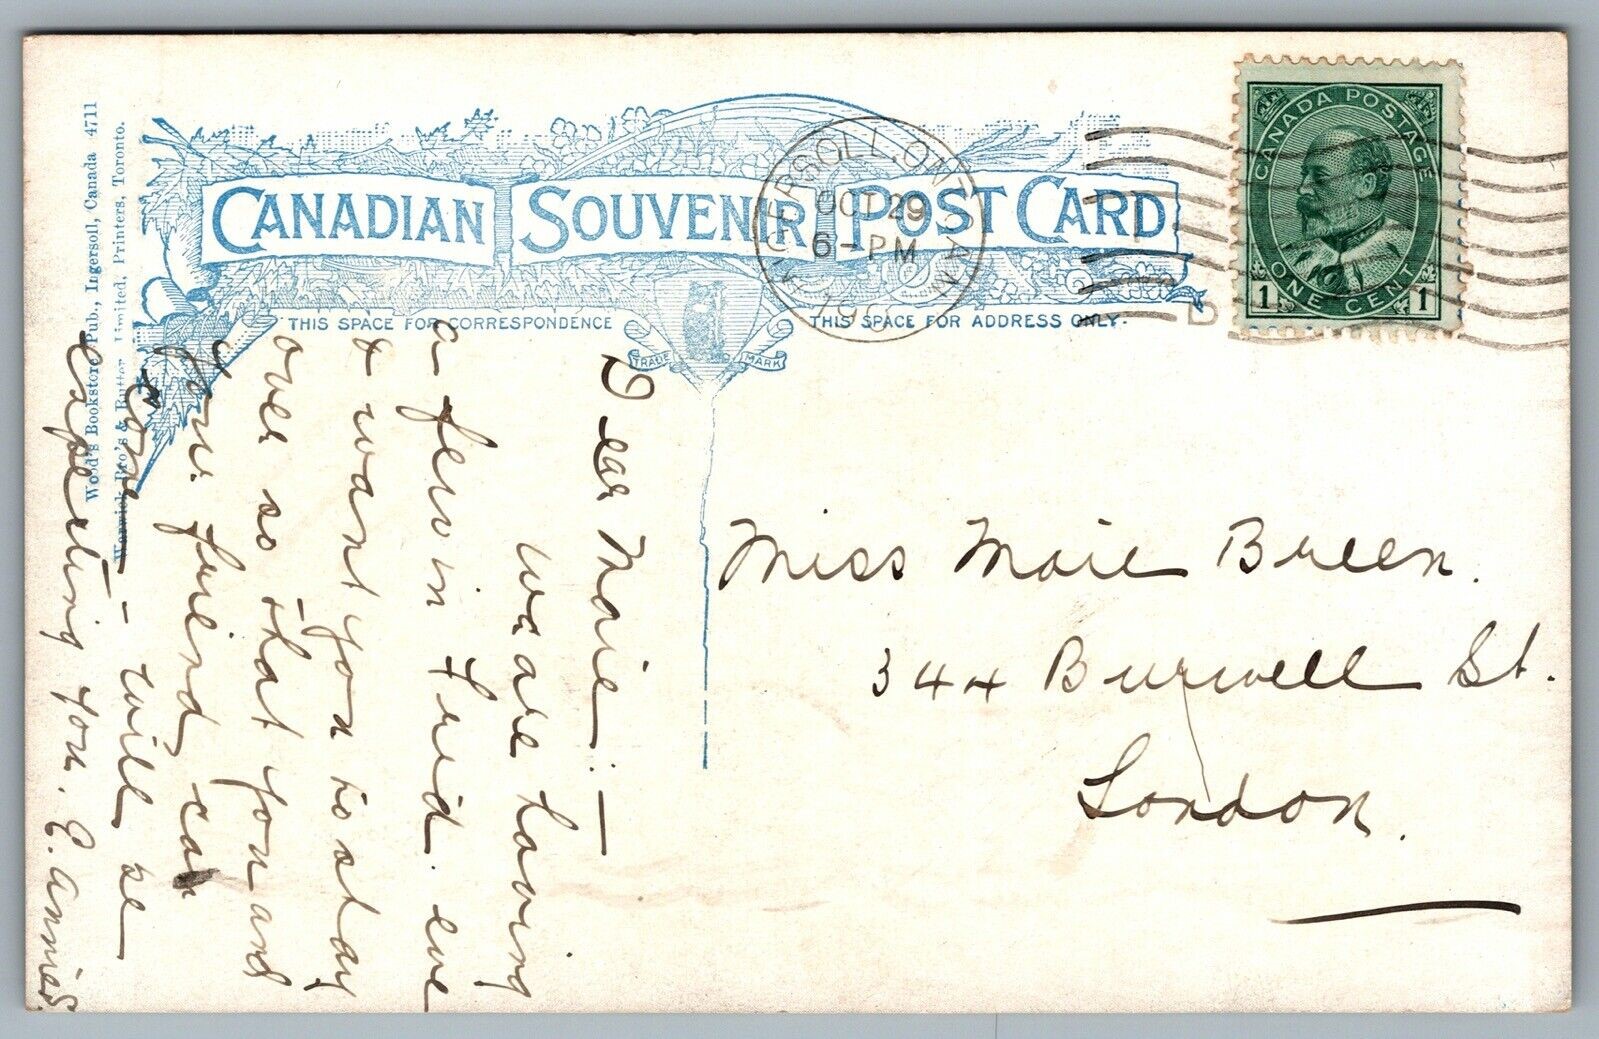 CANADIAN SOUVENIR POST CARD
THIS SPACE FOR CORRESPONDENCE
THIS SPACE FOR ADDRESS ONLY.
TRADE MARK
INGERSOLL. ONT. CAN.
OCT 29
6 - PM
190
B
CANADA POSTAGE
ONE CENT
1 1
Wood's Bookstore Pub., Ingersoll, Canada 4711
Warwick Bro's & Rutter Limited, Printers, Toronto.
Dear Marie: —
We are having
a few in Frid. eve
& want you to stay
over so that you and
your friend can
come – will be
expecting you. E. Annie S.
Miss Marie Breen.
344 Burwell St.
London.